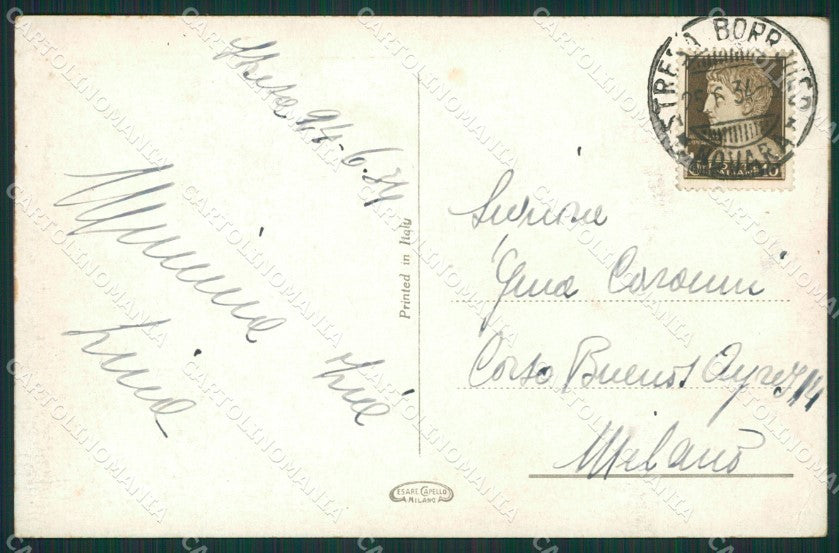 Stresa 24-6.34
Lina
Zie
Printed in Italy
STRESA BORROMEO
6 34
NOVARA
Signora
Gina
Corso Buenos Ayres 14
Milano
CESARE CAPELLO
MILANO
CARTOLINOMANIA